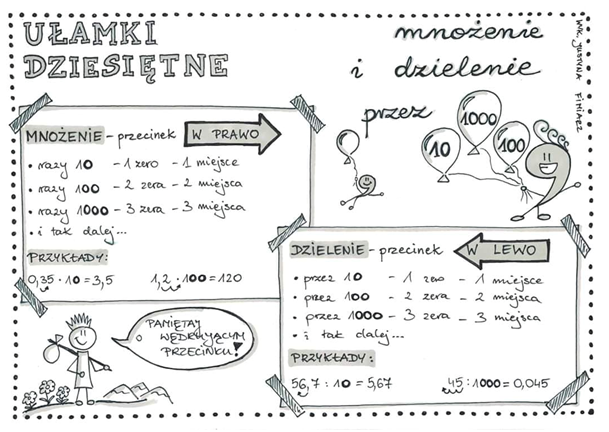 UŁAMKI
DZIESIĘTNE
mnożenie
i dzielenie
przez
WYK. JUSTYNA FIMIARZ
10
1000
100
MNOŻENIE - przecinek W PRAWO
• razy 10 - 1 zero - 1 miejsce
• razy 100 - 2 zera - 2 miejsca
• razy 1000 - 3 zera - 3 miejsca
• i tak dalej...
PRZYKŁADY:
0,35 · 10 = 3,5 1,2 · 100 = 120
DZIELENIE - przecinek W LEWO
• przez 10 - 1 zero - 1 miejsce
• przez 100 - 2 zera - 2 miejsca
• przez 1000 - 3 zera - 3 miejsca
• i tak dalej...
PRZYKŁADY:
56,7 : 10 = 5,67 45 : 1000 = 0,045
PAMIĘTAJ
O
WĘDRUJĄCYM
PRZECINKU!